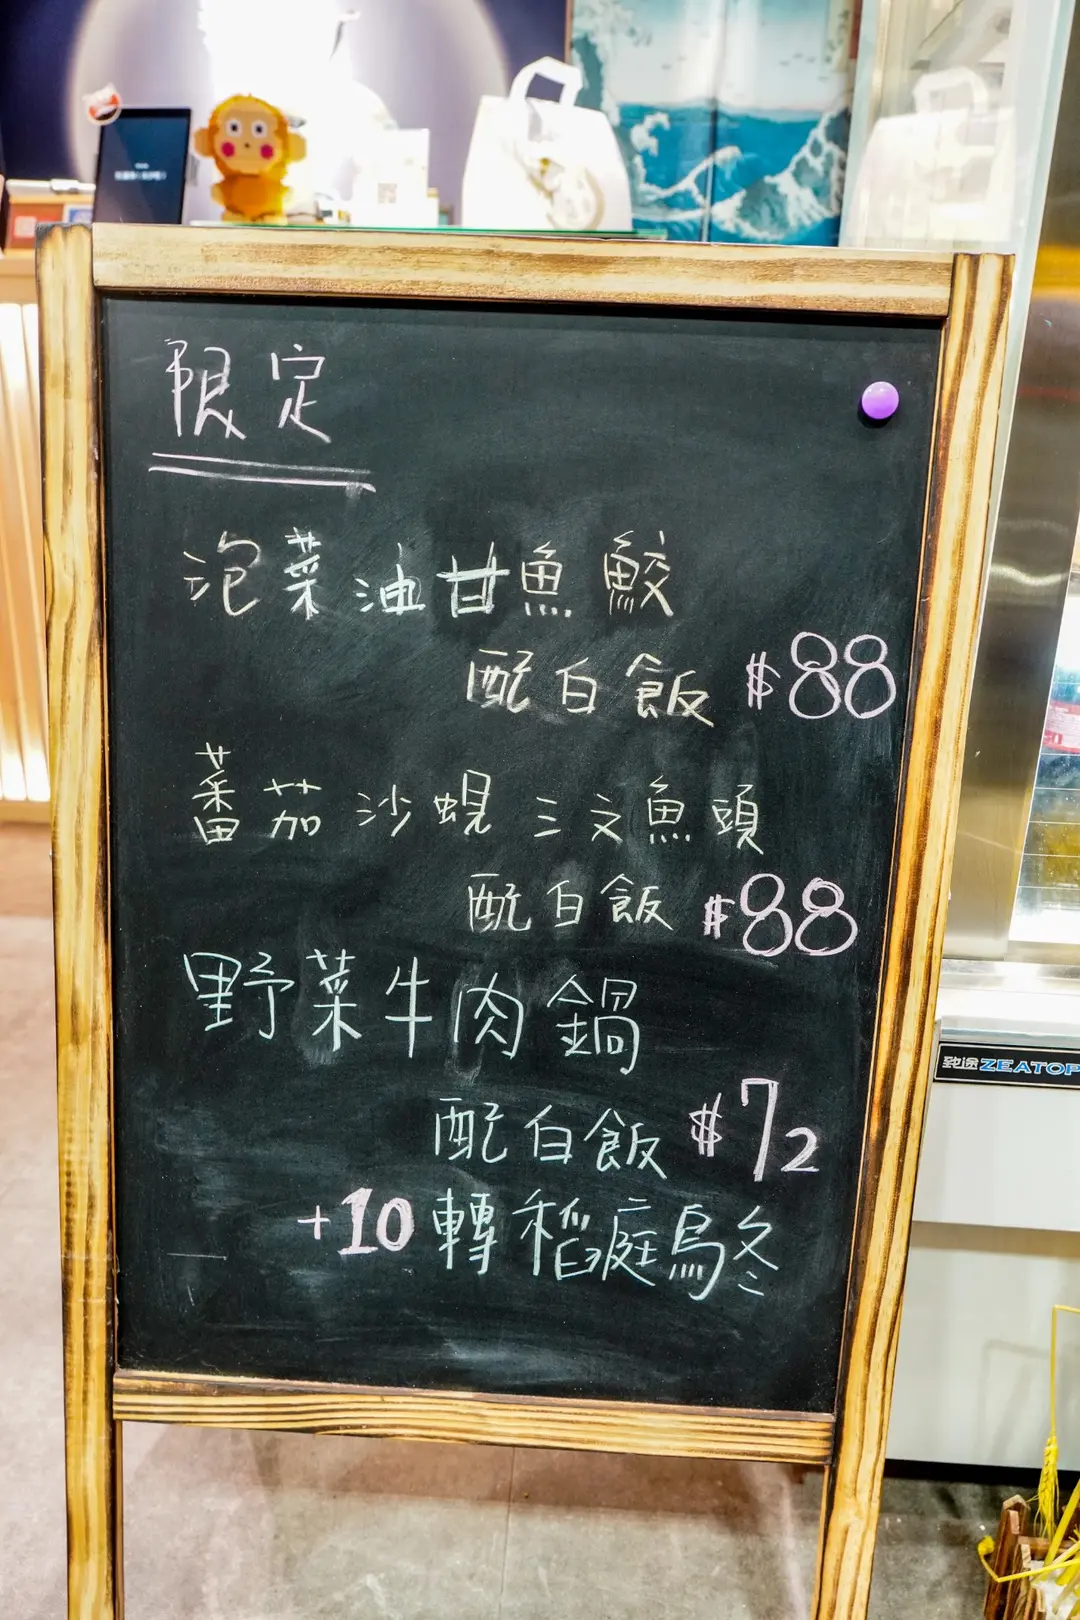 限定
泡菜油甘魚鮫
配白飯 $88
蕃茄沙蜆三文魚頭
配白飯 $88
野菜牛肉鍋
配白飯 $72
+10 轉稻庭烏冬
致途ZEATOP